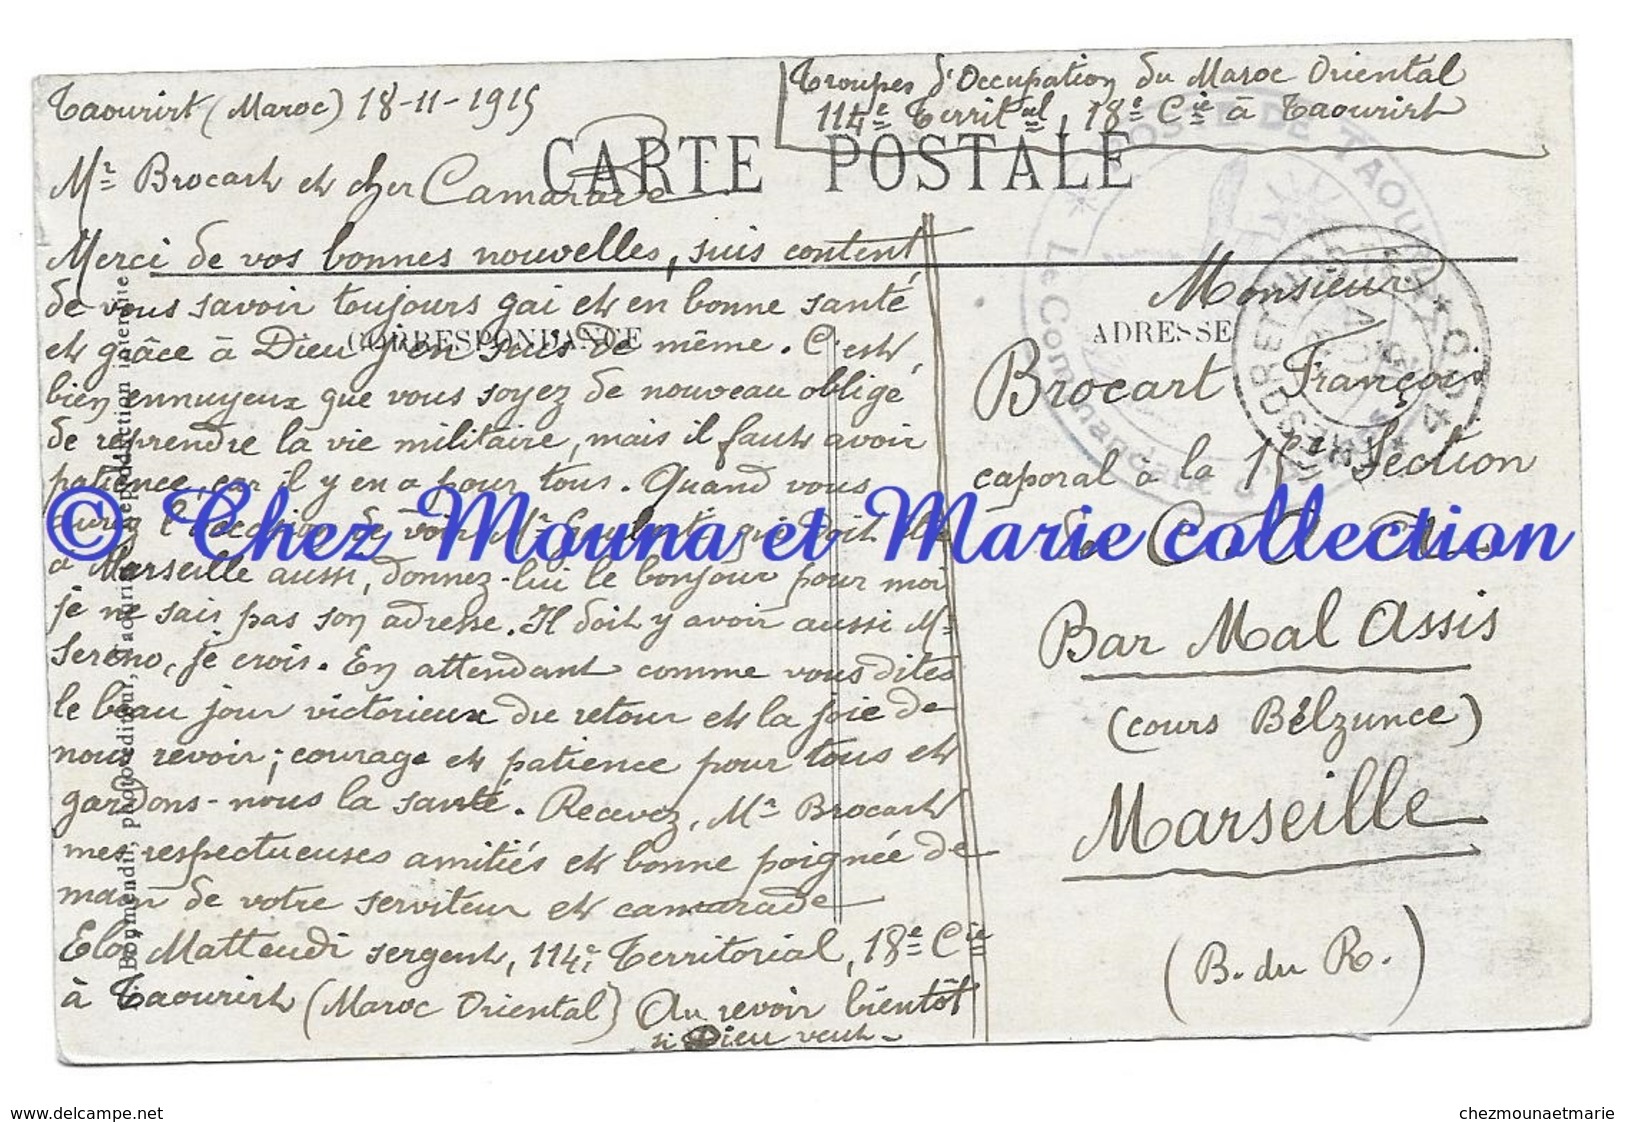 Taourirt (Maroc) 18-11-1915
Troupes d'Occupation du Maroc Oriental
114e Territal, 18e Cie à Taourirt
CARTE POSTALE
Mr Brocart et cher Camarade
Merci de vos bonnes nouvelles, suis content
de vous savoir toujours gai et en bonne santé
et grâce à Dieu j'en suis de même. C'est
bien ennuyeux que vous soyez de nouveau obligé
de reprendre la vie militaire, mais il faut avoir
patience, car il y en a pour tous. Quand vous
aurez l'occasion de voir Mr qui doit être
à Marseille aussi, donnez-lui le bonjour pour moi
je ne sais pas son adresse. Il doit y avoir aussi Mr
Sereno, je crois. En attendant comme vous dites
le beau jour victorieux du retour et la joie de
nous revoir; courage et patience pour tous et
gardons-nous la santé. Recevez, Mr Brocart
mes respectueuses amitiés et bonne poignée de
main de votre serviteur et camarade
Eloi Matteudi sergent, 114e Territorial, 18e Cie
à Taourirt (Maroc Oriental) Au revoir bientôt
si Dieu veut-
CORRESPONDANCE
ADRESSE
Monsieur
Brocart François
caporal à la 15me Section
de C. O. A.
Bar Mal Assis
(cours Bélzunce)
Marseille
(B. du R.)
POSTE DE TAOURIRT
Le Commandant d'Armes
TRESOR ET POSTES
Boumendil, photo-éditeur, Taourirt Reproduction interdite
© Chez Mouna et Marie collection
www.delcampe.net
chezmounaetmarie